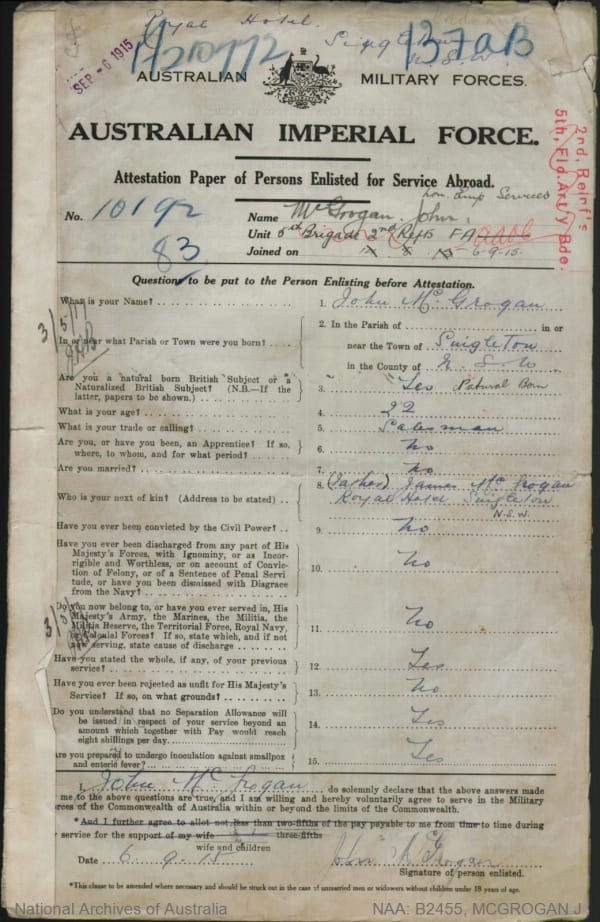 Royal Hotel
Singleton
N. S. W.
SEP -6 1915
137aB
AUSTRALIAN MILITARY FORCES.
AUSTRALIAN IMPERIAL FORCE.
Attestation Paper of Persons Enlisted for Service Abroad.
2nd. Reinf's
5th. Fld. Art'y Bde.
No. 10192
83
Name McGrogan. John.
Unit 5th Brigade 2nd Refts F A
Joined on 6-9-15.
Questions to be put to the Person Enlisting before Attestation.
What is your Name?
1. John Mc Grogan
In or near what Parish or Town were you born?
2. In the Parish of in or
near the Town of Singleton
in the County of N. S. W
Are you a natural born British Subject or a
Naturalized British Subject? (N.B.—If the
latter, papers to be shown.)
3. Yes Natural Born
What is your age?
4. 22
What is your trade or calling?
5. Salesman
Are you, or have you been, an Apprentice? If so,
where, to whom, and for what period?
6. No
Are you married?
7. No
Who is your next of kin? (Address to be stated)
8. (Father) James Mc Grogan
Royal Hotel Singleton
N.S.W.
Have you ever been convicted by the Civil Power?
9. No
Have you ever been discharged from any part of His
Majesty's Forces, with Ignominy, or as Incor-
rigible and Worthless, or on account of Convic-
tion of Felony, or of a Sentence of Penal Servi
tude, or have you been dismissed with Disgrace
from the Navy?
10. No
Do you now belong to, or have you ever served in, His
Majesty's Army, the Marines, the Militia, the
Militia Reserve, the Territorial Force, Royal Navy,
or Colonial Forces? If so, state which, and if not
now serving, state cause of discharge
11. No
Have you stated the whole, if any, of your previous
service?
12. Yes
Have you ever been rejected as unfit for His Majesty's
Service? If so, on what grounds?
13. No
Do you understand that no Separation Allowance will
be issued in respect of your service beyond an
amount which together with Pay would reach
eight shillings per day.
14. Yes
Are you prepared to undergo inoculation against smallpox
and enteric fever?
15. Yes
I, John Mc Grogan do solemnly declare that the above answers made
me to the above questions are true, and I am willing and hereby voluntarily agree to serve in the Military
Forces of the Commonwealth of Australia within or beyond the limits of the Commonwealth.
*And I further agree to allot not less than two-fifths of the pay payable to me from time to time during
service for the support of my wife three-fifths
wife and children
Date 6. 9. 15
John McGrogan
Signature of person enlisted.
*This clause to be amended where necessary and should be struck out in the case of unmarried men or widowers without children under 18 years of age.
National Archives of Australia
NAA: B2455, MCGROGAN J